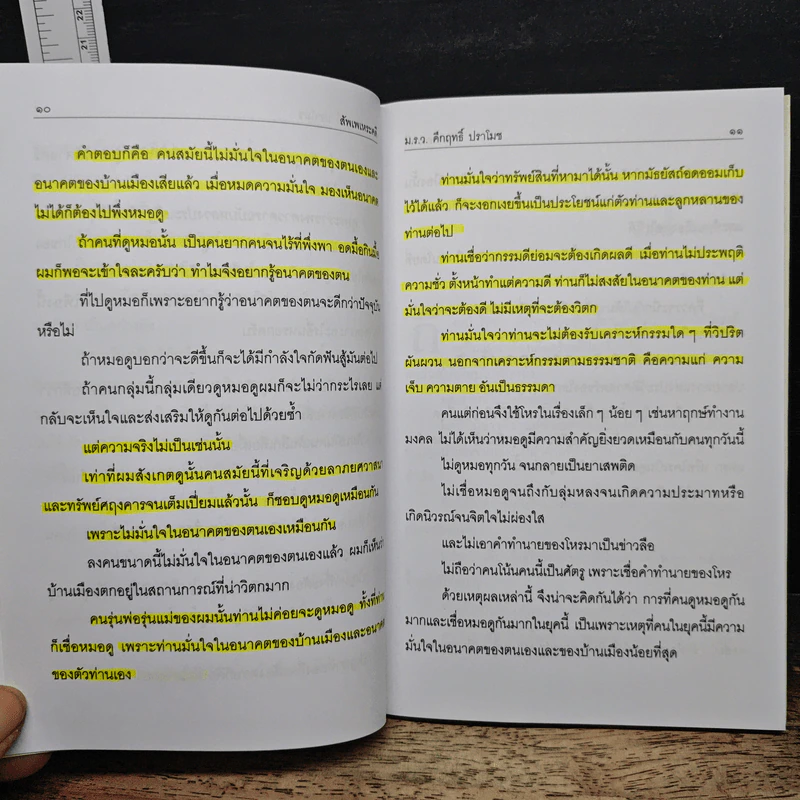 ๑๐
สัพเพเหระคดี
คำตอบก็คือ คนสมัยนี้ไม่มั่นใจในอนาคตของตนเองและ
อนาคตของบ้านเมืองเสียแล้ว เมื่อหมดความมั่นใจ มองเห็นอนาคต
ไม่ได้ก็ต้องไปพึ่งหมอดู
ถ้าคนที่ดูหมอนั้น เป็นคนยากคนจนไร้ที่พึ่งพา อดมื้อกินมื้อ
ผมก็พอจะเข้าใจละครับว่า ทำไมจึงอยากรู้อนาคตของตน
ที่ไปดูหมอก็เพราะอยากรู้ว่าอนาคตของตนจะดีกว่าปัจจุบัน
หรือไม่
ถ้าหมอดูบอกว่าจะดีขึ้นก็จะได้มีกำลังใจกัดฟันสู้มันต่อไป
ถ้าคนกลุ่มนี้กลุ่มเดียวดูหมอดูผมก็จะไม่ว่ากระไรเลย แต่
กลับจะเห็นใจและส่งเสริมให้ดูกันต่อไปด้วยซ้ำ
แต่ความจริงไม่เป็นเช่นนั้น
เท่าที่ผมสังเกตดูนั้นคนสมัยนี้ที่เจริญด้วยลาภยศวาสนา
และทรัพย์ศฤงคารจนเต็มเปี่ยมแล้วนั้น ก็ชอบดูหมอดูเหมือนกัน
เพราะไม่มั่นใจในอนาคตของตนเองเหมือนกัน
ลงคนขนาดนี้ไม่มั่นใจในอนาคตของตนเองแล้ว ผมก็เห็นว่า
บ้านเมืองตกอยู่ในสถานการณ์ที่น่าวิตกมาก
คนรุ่นพ่อรุ่นแม่ของผมนั้นท่านไม่ค่อยจะดูหมอดู ทั้งที่ท่าน
ก็เชื่อหมอดู เพราะท่านมั่นใจในอนาคตของบ้านเมืองและอนาคต
ของตัวท่านเอง
ม.ร.ว. คึกฤทธิ์ ปราโมช
๑๑
ท่านมั่นใจว่าทรัพย์สินที่หามาได้นั้น หากมัธยัสถ์อดออมเก็บ
ไว้ได้แล้ว ก็จะงอกเงยขึ้นเป็นประโยชน์แก่ตัวท่านและลูกหลานของ
ท่านต่อไป
ท่านเชื่อว่ากรรมดีย่อมจะต้องเกิดผลดี เมื่อท่านไม่ประพฤติ
ความชั่ว ตั้งหน้าทำแต่ความดี ท่านก็ไม่สงสัยในอนาคตของท่าน แต่
มั่นใจว่าจะต้องดี ไม่มีเหตุที่จะต้องวิตก
ท่านมั่นใจว่าท่านจะไม่ต้องรับเคราะห์กรรมใด ๆ ที่วิปริต
ผันผวน นอกจากเคราะห์กรรมตามธรรมชาติ คือความแก่ ความ
เจ็บ ความตาย อันเป็นธรรมดา
คนแต่ก่อนจึงใช้โหรในเรื่องเล็ก ๆ น้อย ๆ เช่นหาฤกษ์ทำงาน
มงคล ไม่ได้เห็นว่าหมอดูมีความสำคัญยิ่งยวดเหมือนกับคนทุกวันนี้
ไม่ดูหมอทุกวัน จนกลายเป็นยาเสพติด
ไม่เชื่อหมอดูจนถึงกับลุ่มหลงจนเกิดความประมาทหรือ
เกิดนิวรณ์จนจิตใจไม่ผ่องใส
และไม่เอาคำทำนายของโหรมาเป็นข่าวลือ
ไม่ถือว่าคนโน้นคนนี้เป็นศัตรู เพราะเชื่อคำทำนายของโหร
ด้วยเหตุผลเหล่านี้ จึงน่าจะคิดกันได้ว่า การที่คนดูหมอดูกัน
มากและเชื่อหมอดูกันมากในยุคนี้ เป็นเพราะเหตุที่คนในยุคนี้มีความ
มั่นใจในอนาคตของตนเองและของบ้านเมืองน้อยที่สุด
22
21